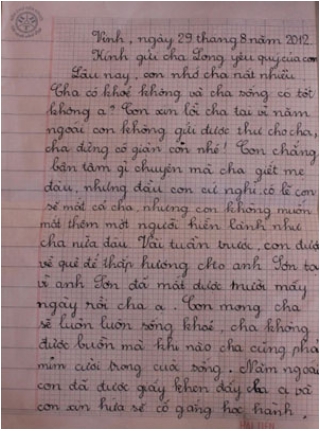 Vinh, ngày 29 tháng 8 năm 2012
Kính gửi cha Long yêu quý của con
Lâu nay, con nhớ cha rất nhiều
Cha có khoẻ không và cha sống có tốt
không ạ? Con xin lỗi cha tại vì năm
ngoái con không gửi được thư cho cha,
cha đừng có giận con nhé! Con chẳng
bận tâm gì chuyện mà cha giết mẹ
đâu, nhưng dẫu con cứ nghĩ, có lẽ con
sẽ mất cả cha, nhưng con không muốn
mất thêm một người hiền lành như
cha nữa đâu. Vài tuần trước, con được
về quê để thắp hương cho anh Sơn tại
vì anh Sơn đã mất được mười mấy
ngày rồi cha ạ. Con mong cha
sẽ luôn luôn sống khoẻ, cha không
được buồn mà khi nào cha cũng phải
mỉm cười trong cuộc sống. Năm ngoái
con đã được giấy khen đấy cha ạ và
con xin hứa sẽ cố gắng học hành.